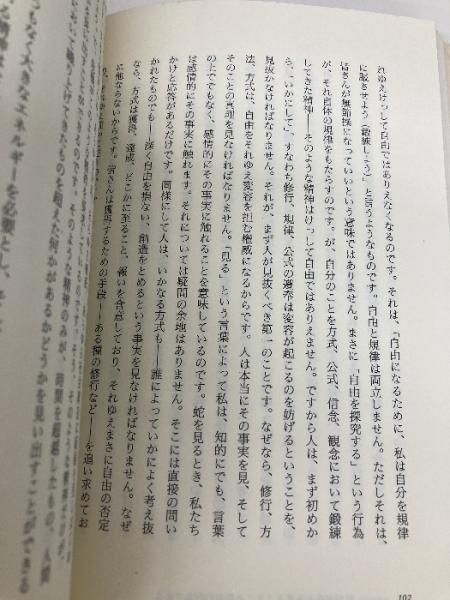 れゆえけっして自由ではありえなくなるのです。それは、「自由になるために、私は自分を規律
に服させよう（鍛錬しよう）」と言うようなものです。自由と規律は両立しません。ただしそれは、
皆さんが無節操になっていいという意味ではありません。まさに「自由を探究する」という行為
が、それ自体の規律をもたらすのです。が、自分のことを方式、公式、信念、観念において鍛練
してきた精神——そのような精神はけっして自由ではありえません。ですから人は、まず初めか
ら、「いかにして」、すなわち修行、規律、公式の遵奉は変容が起こるのを妨げるということを、
見抜かなければなりません。それが、まず人が見抜くべき第一のことです。なぜなら、修行、方
法、方式は、自由をそれゆえ変容を拒む権威になるからです。人は本当にその事実を見、そして
そのことの真理を見なければなりません。「見る」という言葉によって私は、知的にでも、言葉
の上ででもなく、感情的にその事実に触れることを意味しているのです。蛇を見るとき、私たち
は感情的にその事実に触れます。それについては疑問の余地はありません。そこには直接の問い
かけと応答があるだけです。同様にして人は、いかなる方式も——誰によっていかによく考え抜
かれたものでも——深く自由を損ない、創造をとめるという事実を見なければなりません。なぜ
なら、方式は獲得、達成、どこかに至ること、報いを含意しており、それゆえまさに自由の否定
に他ならないからです。皆さんは獲得するための手段——ある種の修行など——を追い求めてお
時間を超越した
何かがあるかどうかを見い出すことができる
102